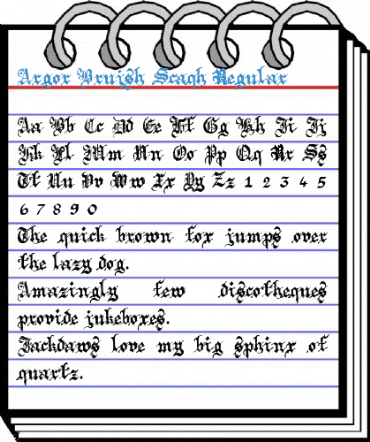 Argor Brujsh Scaqh Regular
Aa Bb Cc Dd Ee Ff Gg Hh Ii Jj
Kk Ll Mm Nn Oo Pp Qq Rr Ss
Tt Uu Vv Ww Xx Yy Zz 1 2 3 4 5
6 7 8 9 0
The quick brown fox jumps over
the lazy dog.
Amazingly few discotheques
provide jukeboxes.
Jackdaws love my big sphinx of
quartz.